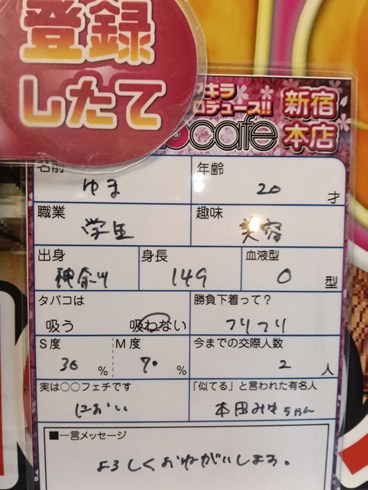 登録
したて
キラ
ロデュース!!
cafe
新宿
本店
名前
年齢
ゆま
20 才
職業
趣味
学生
美容
出身
身長
血液型
神奈川
149
O 型
タバコは
勝負下着って?
吸う 吸わない
フリフリ
S度
M度
今までの交際人数
30 %
70 %
2 人
実は○○フェチです
「似てる」と言われた有名人
におい
本田みゆちゃん
■一言メッセージ
よろしくおねがいしまる。